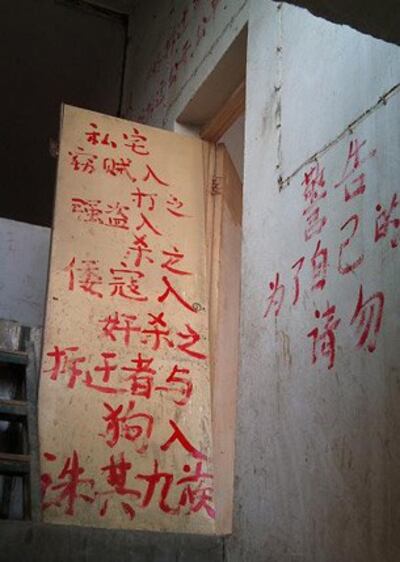 私宅
窃贼入
打之
强盗入
杀之
倭冠入
奸杀之
拆迁者与
狗入
诛其九族
警告
为了自己的
请勿